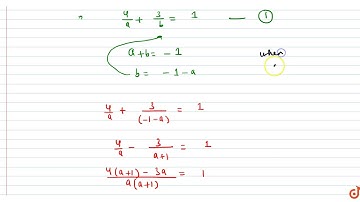 ∴ 4/a + 3/b = 1 — ①
a+b = -1
when
b = -1-a
4/a + 3/(-1-a) = 1
4/a - 3/(a+1) = 1
(4(a+1) - 3a)/(a(a+1)) = 1